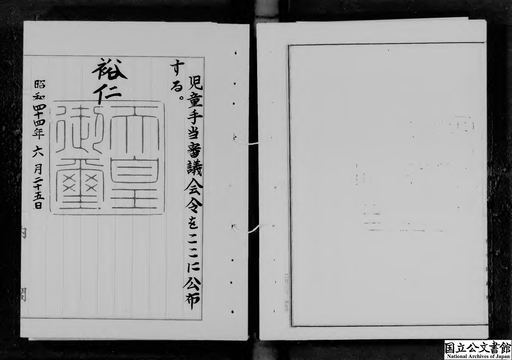 児童手当審議会令をここに公布
する。
裕仁
天皇
御璽
昭和四十四年六月二十五日
内閣
国立公文書館
National Archives of Japan